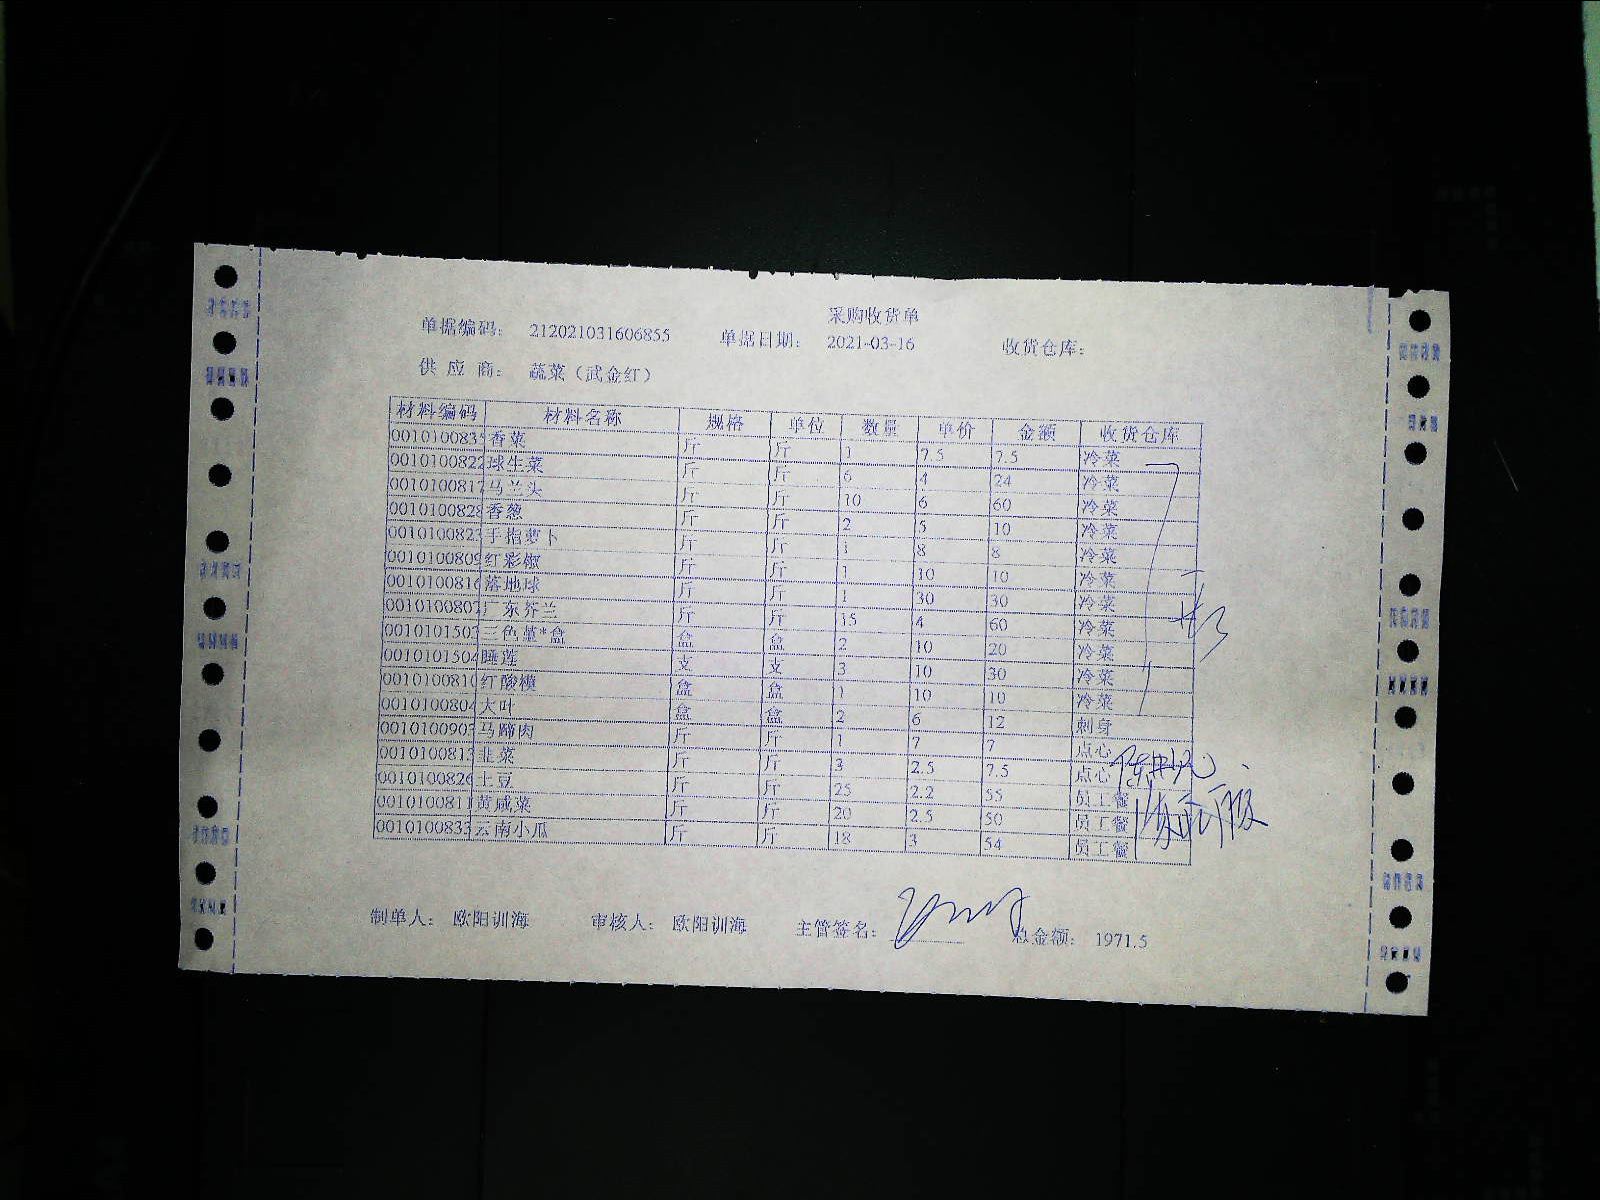 采购收货单
单据编码： 212021031606855 单据日期： 2021-03-16 收货仓库：
供 应 商： 蔬菜（武金红）
材料编码 材料名称 规格 单位 数量 单价 金额 收货仓库
0010100835 香菜 斤 斤 1 7.5 7.5 冷菜
0010100822 球生菜 斤 斤 6 4 24 冷菜
0010100817 马兰头 斤 斤 10 6 60 冷菜
0010100828 香葱 斤 斤 2 5 10 冷菜
0010100823 手指萝卜 斤 斤 1 8 8 冷菜
0010100809 红彩椒 斤 斤 1 10 10 冷菜
0010100816 落地球 斤 斤 1 30 30 冷菜
0010100807 广东芥兰 斤 斤 15 4 60 冷菜
0010101503 三色堇*盒 盒 盒 2 10 20 冷菜
0010101504 睡莲 支 支 3 10 30 冷菜
0010100810 红酸模 盒 盒 1 10 10 冷菜
0010100804 大叶 盒 盒 2 6 12 刺身
0010100903 马蹄肉 斤 斤 1 7 7 点心
0010100813 韭菜 斤 斤 3 2.5 7.5 点心
0010100826 土豆 斤 斤 25 2.2 55 员工餐
0010100811 黄咸菜 斤 斤 20 2.5 50 员工餐
0010100833 云南小瓜 斤 斤 18 3 54 员工餐
制单人： 欧阳训海 审核人： 欧阳训海 主管签名： 总金额： 1971.5